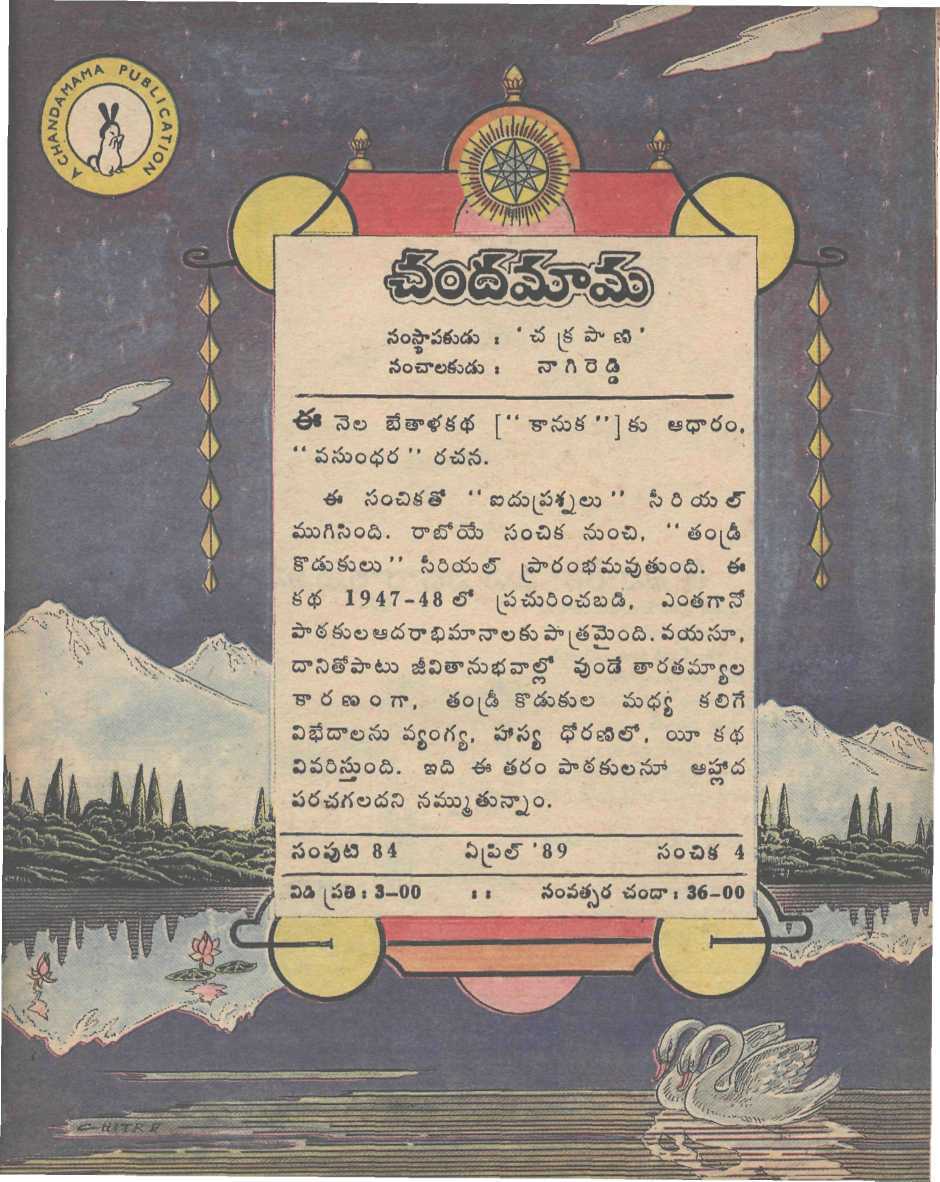 A CHANDAMAMA PUBLICATION
చందమామ
సంస్థాపకుడు : ' చ క్ర పా ణి '
సంచాలకుడు : నా గి రె డ్డి
ఈ నెల బేతాళకథ [“ కానుక ”] కు ఆధారం,
“ వసుంధర ” రచన.
ఈ సంచికతో “ ఐదుప్రశ్నలు ” సీ రి య ల్
ముగిసింది. రాబోయే సంచిక నుంచి, “ తండ్రీ
కొడుకులు ” సీరియల్ ప్రారంభమవుతుంది. ఈ
కథ 1947-48 లో ప్రచురించబడి, ఎంతగానో
పాఠకుల ఆదరాభిమానాలకు పాత్రమైంది. వయసూ,
దానితోపాటు జీవితానుభవాల్లో వుండే తారతమ్యాల
కా ర ణ ం గా, తండ్రీ కొడుకుల మధ్య కలిగే
విభేదాలను వ్యంగ్య, హాస్య ధోరణిలో, యీ కథ
వివరిస్తుంది. ఇది ఈ తరం పాఠకులనూ ఆహ్లాద
పరచగలదని నమ్ముతున్నాం.
సంపుటి 84 ఏప్రిల్ '89 సంచిక 4
విడి ప్రతి : 3-00 : : సంవత్సర చందా : 36-00
CHITRA